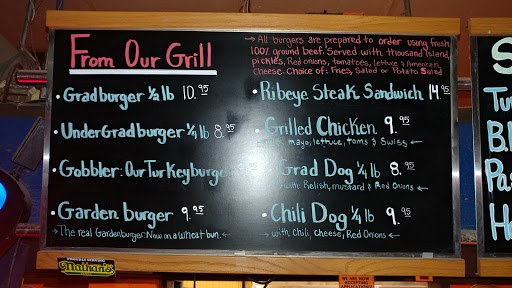 From Our Grill
• All burgers are prepared to order using fresh
100% ground beef. Served with thousand island,
pickles, Red onions, tomatoes, lettuce & American
cheese. Choice of: Fries, Salad or Potato Salad
• Gradburger 1/2 lb 10.95
• UnderGradburger 1/4 lb 8.95
• Gobbler: Our Turkeyburger
• Garden burger 9.95
→ The real Gardenburger. Now on a wheat bun. ←
• Ribeye Steak Sandwich 14.95
• Grilled Chicken 9.95
mayo, lettuce, toms & Swiss ←
• Grad Dog 1/4 lb 8.95
with Relish, mustard & Red Onions ←
• Chili Dog 1/4 lb 9.95
→ with, chili, cheese, Red Onions ←
S
Tu
B.
Pa
H
PROUDLY SERVING
Nathan's
WE ARE NOW
ACCEPTING
APPLICATIONS